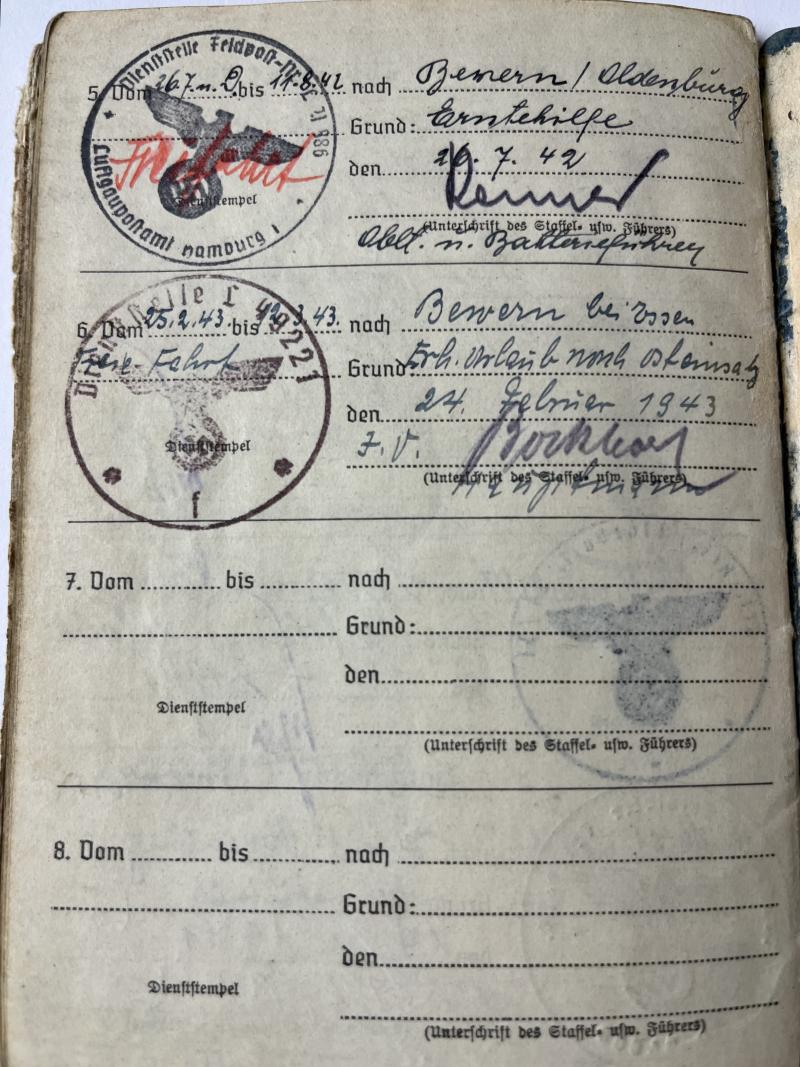 Dienststelle Feldpost-Nr. L
Luftgaupostamt Hamburg 1
5. Vom 26.7. n. D. bis 14.8.42 nach Bewern / Oldenburg
Freifahrt Grund: Erntehilfe
den 26. 7. 42
Dienststempel
(Unterschrift des Staffel- usw. Führers)
Oblt. u. Batterieführer
Dienststelle L 49221
6. Vom 25.2.43. bis 12.3.43. nach Bewern bei Essen
Freie-Fahrt Grund: Erh. Urlaub nach Osteinsatz
den 24. Februar 1943
I.V.
Dienststempel
(Unterschrift des Staffel- usw. Führers)
Hauptmann
f
7. Vom bis nach
Grund:
den
Dienststempel
(Unterschrift des Staffel- usw. Führers)
8. Vom bis nach
Grund:
den
Dienststempel
(Unterschrift des Staffel- usw. Führers)